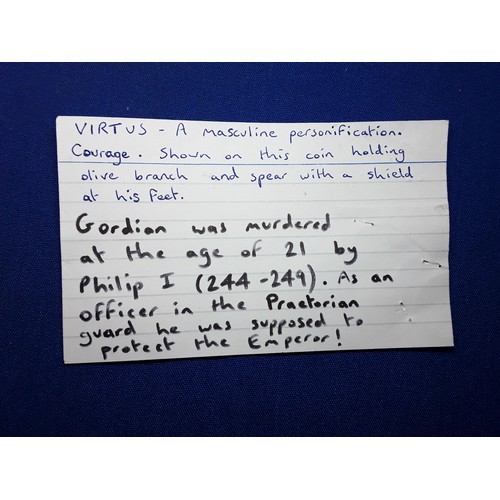 VIRTUS - A masculine personification.
Courage. Shown on this coin holding
olive branch and spear with a shield
at his feet.
Gordian was murdered
at the age of 21 by
Philip I (244-249). As an
officer in the Praetorian
guard he was supposed to
protect the Emperor!